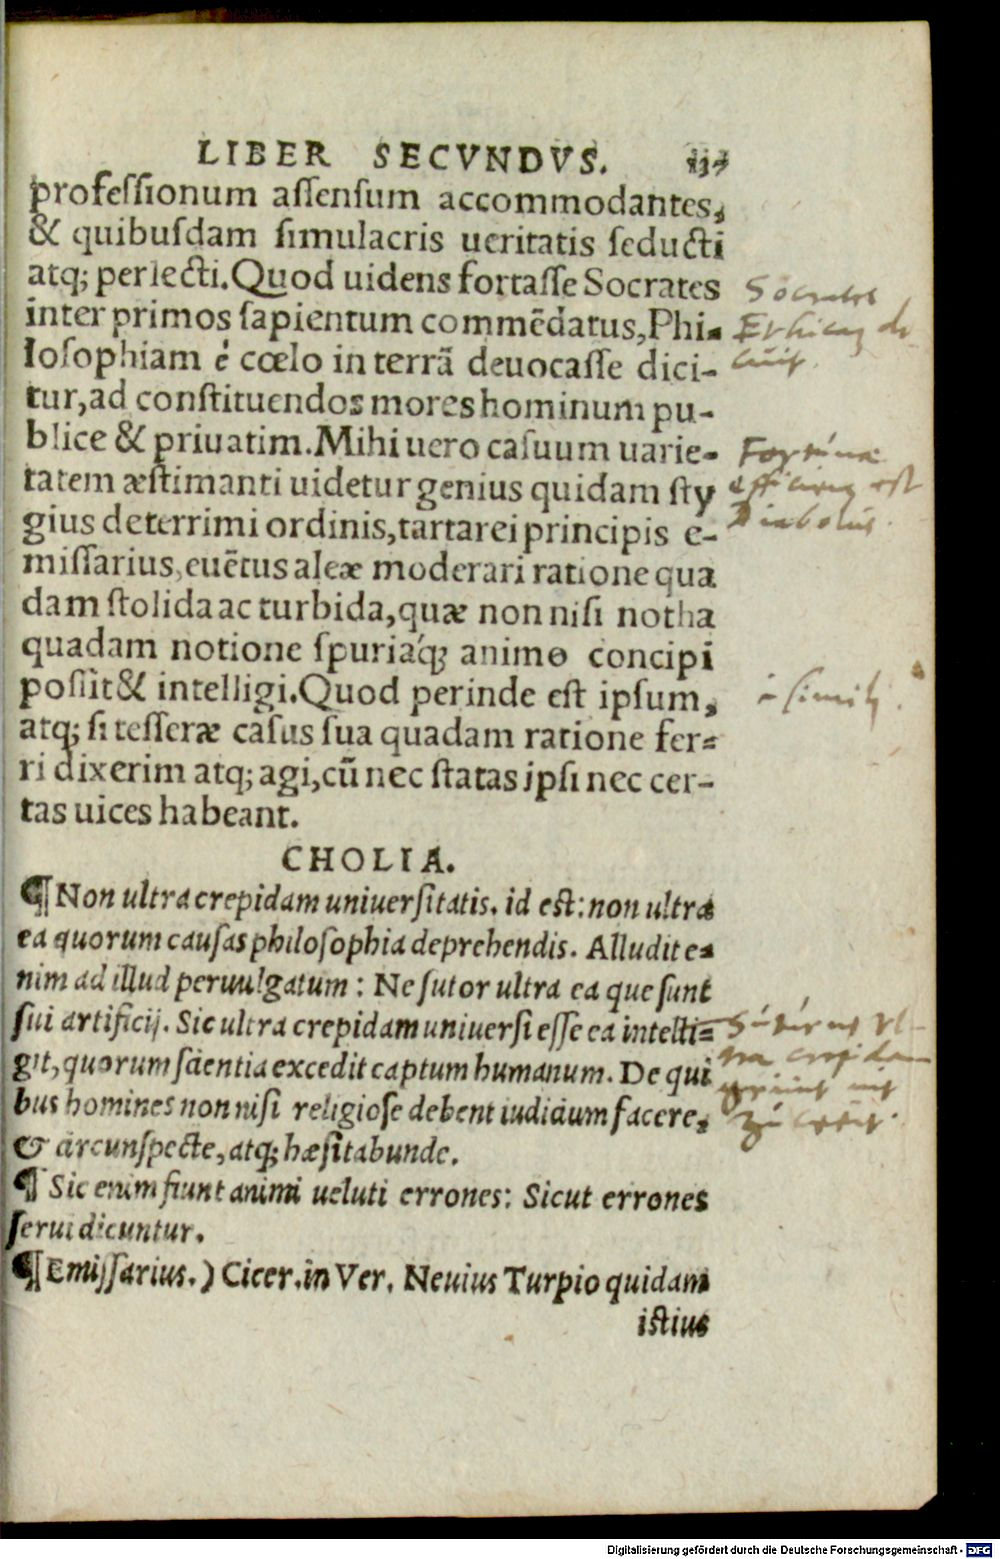 LIBER SECVNDVS.
profeſſionum aſſenſum accommodantes,
& quibuſdam ſimulacris ueritatis ſeducti
atq; perlecti. Quod uidens fortaſſe Socrates
inter primos ſapientum commēdatus, Phi-
loſophiam è cœlo in terrā deuocaſſe dici-
tur, ad conſtituendos mores hominum pu-
blice & priuatim. Mihi uero caſuum uarie-
tatem æſtimanti uidetur genius quidam ſty
gius deterrimi ordinis, tartarei principis e-
miſſarius, euētus aleæ moderari ratione qua
dam ſtolida ac turbida, quæ non niſi notha
quadam notione ſpuriáq; animo concipi
poſsit & intelligi. Quod perinde eſt ipſum,
atq; ſi teſſeræ caſus ſua quadam ratione fer-
ri dixerim atq; agi, cū nec ſtatas ipſi nec cer-
tas uices habeant.
Socrates
Ethicam
Fortuna
est
Diabolus.
à simili.
CHOLIA.
¶ Non ultra crepidam uniuerſitatis. id eſt: non ultra
ea quorum cauſas philoſophia deprehendis. Alludit e-
nim ad illud peruulgatum: Ne ſutor ultra ea que ſunt
ſui artificij. Sic ultra crepidam uniuerſi eſſe ea intelli-
git, quorum ſcientia excedit captum humanum. De qui
bus homines non niſi religioſe debent iudicium facere,
& circunſpecte, atq; hæſitabunde.
¶ Sic enim fiunt animi ueluti errones: Sicut errones
ſerui dicuntur.
¶ Emiſſarius.) Cicer. in Ver. Neuius Turpio quidam
iſtius
crepidam
Digitalisierung gefördert durch die Deutsche Forschungsgemeinschaft - DFG